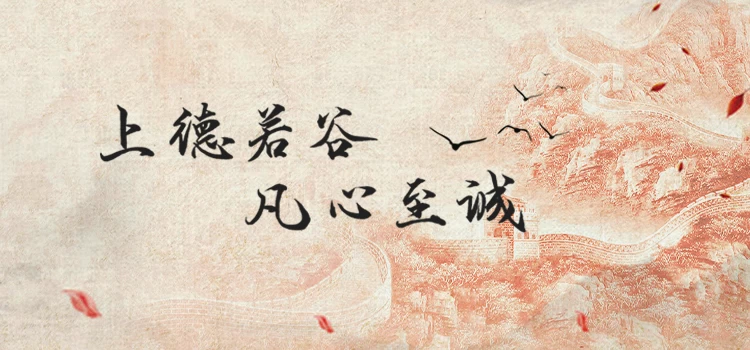 上德若谷
凡心至诚